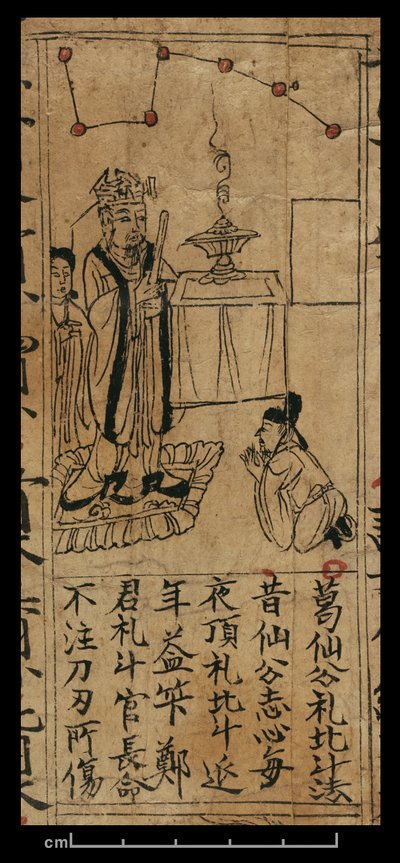 葛仙公礼北斗法
昔仙公志心每
夜頂礼北斗延
年益笇鄭
君礼斗官長命
不注刀刃所傷
cm